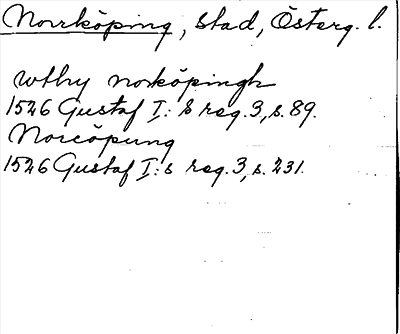 Norrköping, stad, Österg. l.
wthy norköpingh
1526 Gustaf I:s reg. 3, s. 89.
Norcöpung
1526 Gustaf I:s reg. 3, s. 231.